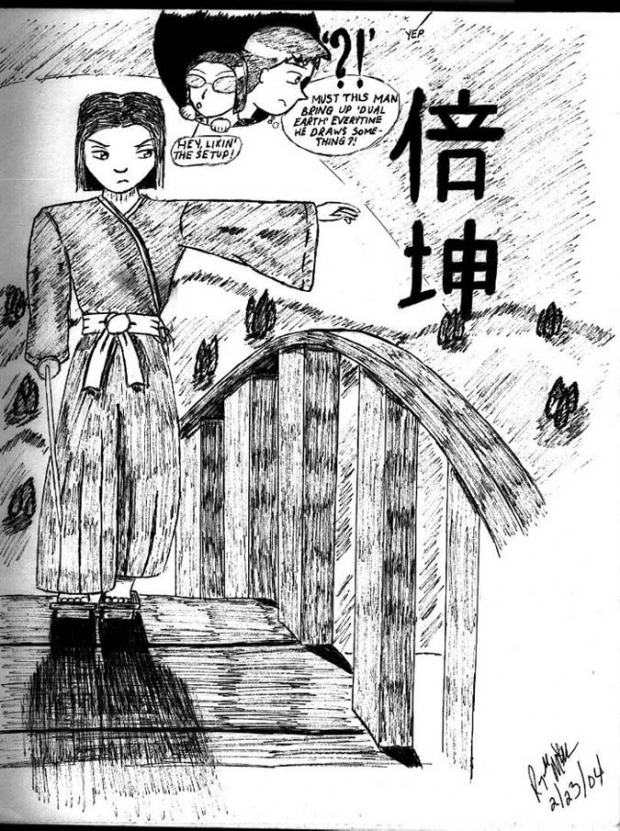 '?!'
YEP.
MUST THIS MAN
BRING UP 'DUAL
EARTH' EVERYTIME
HE DRAWS SOME-
THING?!
HEY, LIKIN'
THE SETUP!
倍
坤
2/23/04